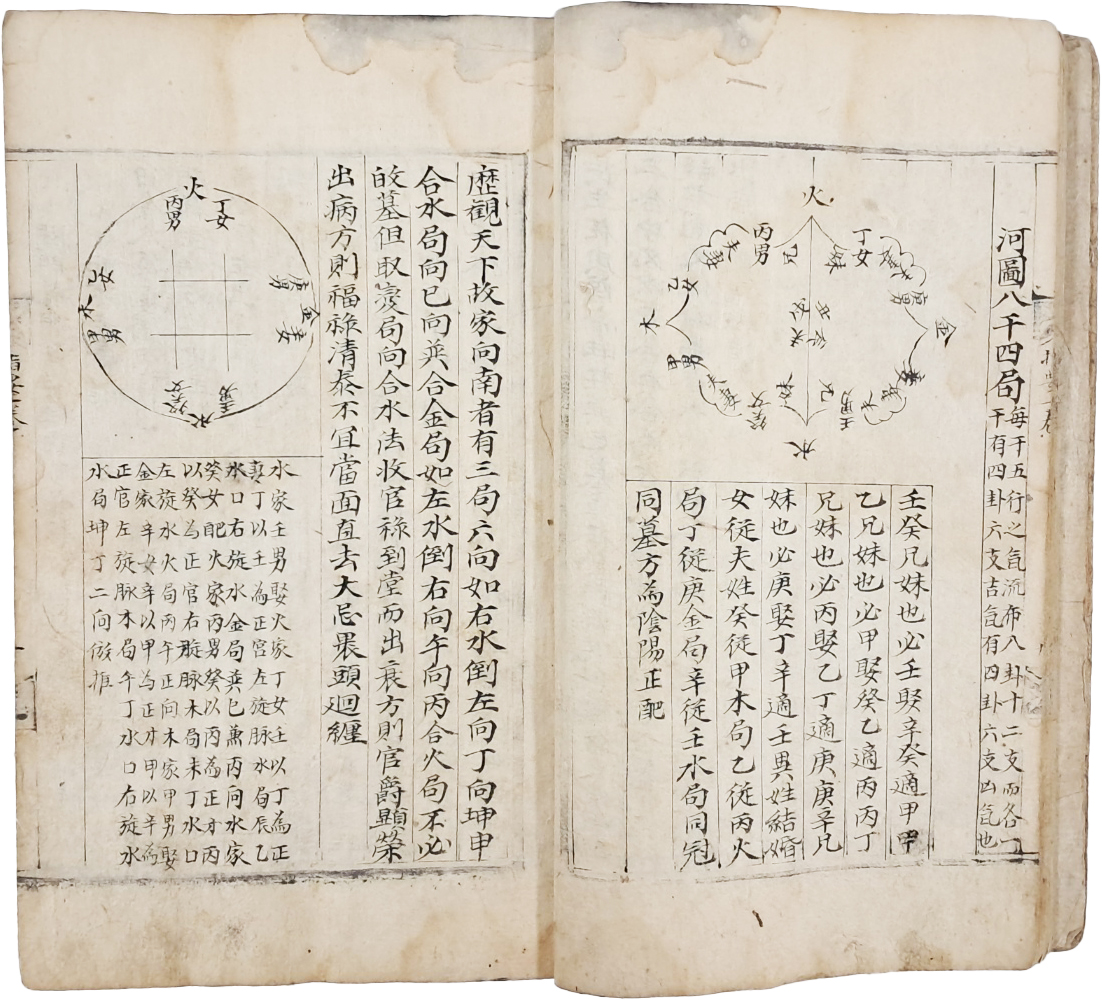 河圖八千四局
每干五行之氣流布八卦十二支而各一
干有四卦六支吉氣有四卦六支凶氣也
火
丙男
兄
丁女
妹
庚男
金
乙女
木
甲男
癸女
水
壬男
兄
壬癸兄妹也必壬娶辛癸適甲甲
乙兄妹也必甲娶癸乙適丙丙丁
兄妹也必丙娶乙丁適庚庚辛兄
妹也必庚娶丁辛適壬異姓結婚
女徒夫姓癸徒甲木局乙徒丙火
局丁徒庚金局辛徒壬水局同冠
同墓方為陰陽正配
歷觀天下故家向南者有三局六向如右水倒左向丁向坤申
合水局向巳向巽合金局如左水倒右向午向丙合火局不必
故墓但取變局向合水法收官祿到堂而出衰方則官爵顯榮
出病方則福祿清泰不宜當面直去大忌裹頭迴纏
火
丁女
丙男
庚男
金
乙女
木
甲男
癸女
水
壬男
水家壬男娶火家丁女壬以丁為正
妻丁以壬為正官左旋脉水局辰乙
水口右旋水金局巽巳兼丙向水家
癸女配火家丙男癸以丙為正才丙
以癸為正官右旋脉木局未丁水口
左旋水火局丙午正向木家甲男娶
金家辛女辛以甲為正才甲以辛為
正官左旋脉木局午丁水口右旋水
水局坤丁二向倣推